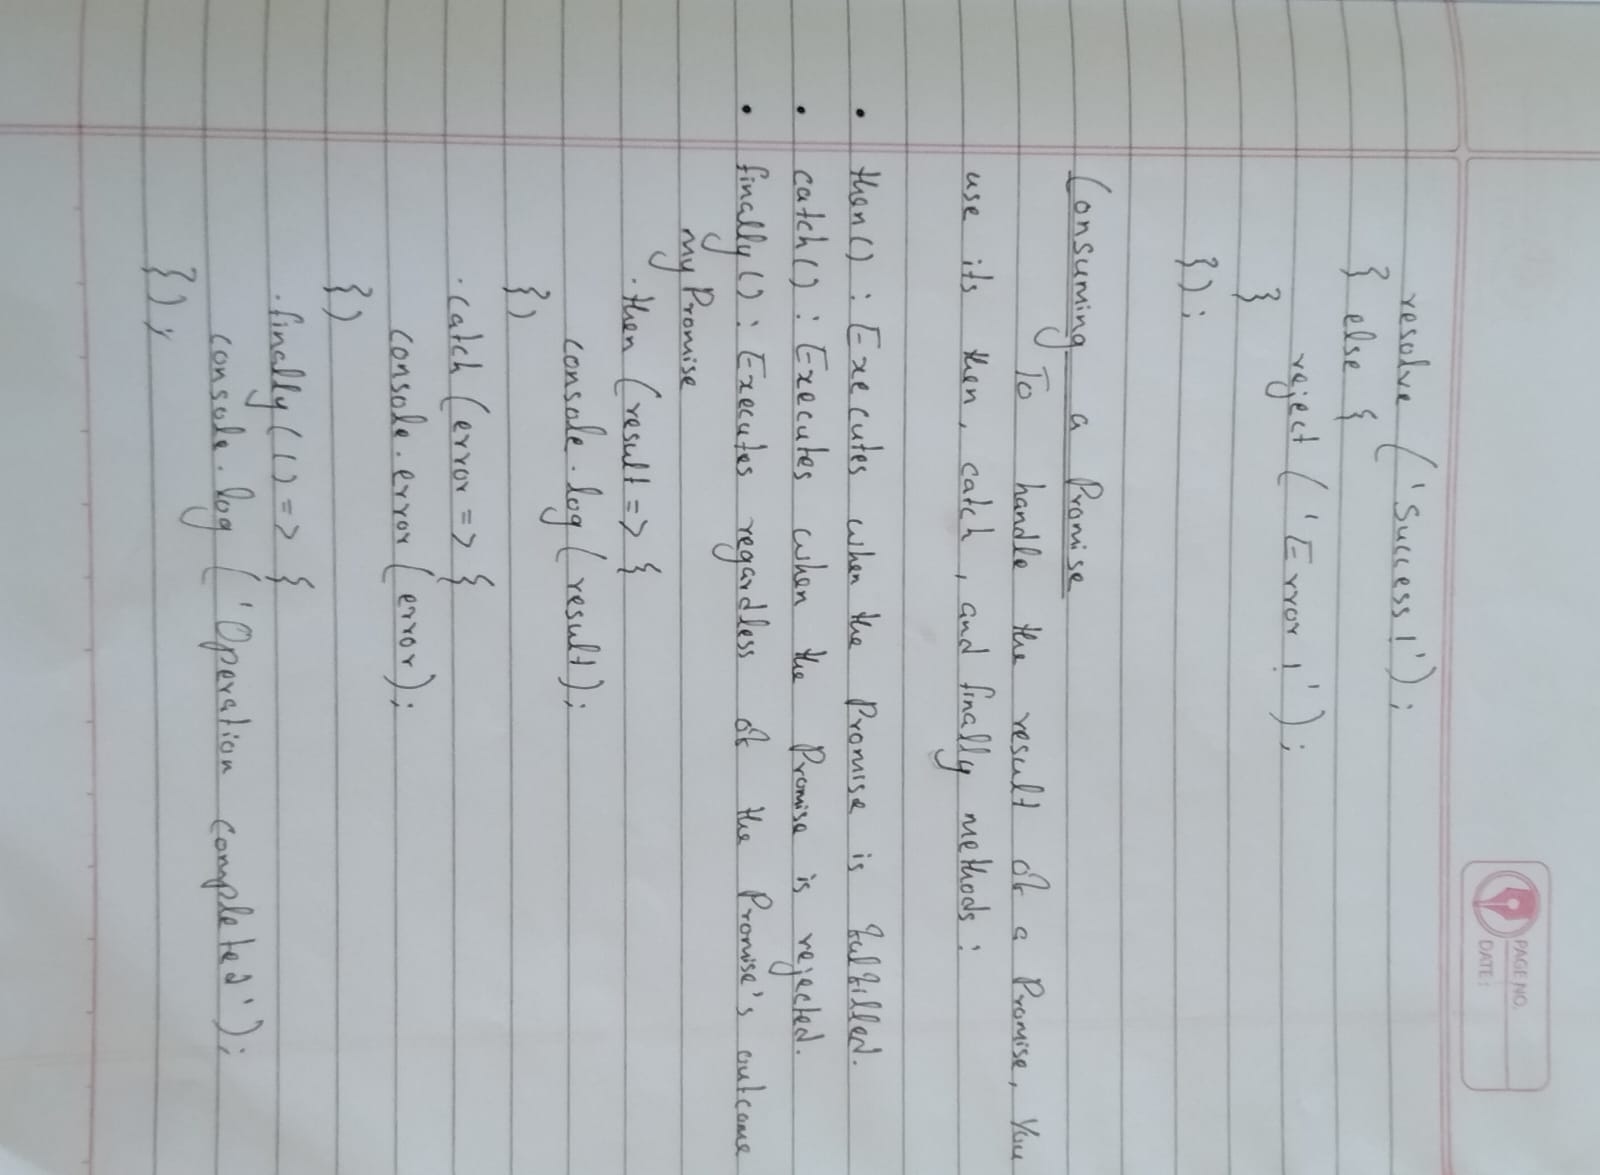 PAGE NO.
DATE:
resolve ('Success!');
} else {
reject ('Error!');
}
});
Consuming a Promise
To handle the result of a Promise, you
use its then, catch, and finally methods:
• then() : Executes when the Promise is fulfilled.
• catch() : Executes when the Promise is rejected.
• finally() : Executes regardless of the Promise's outcome
myPromise
.then (result => {
console.log (result);
})
.catch (error => {
console.error (error);
})
.finally(() => {
console.log ('Operation completed');
});